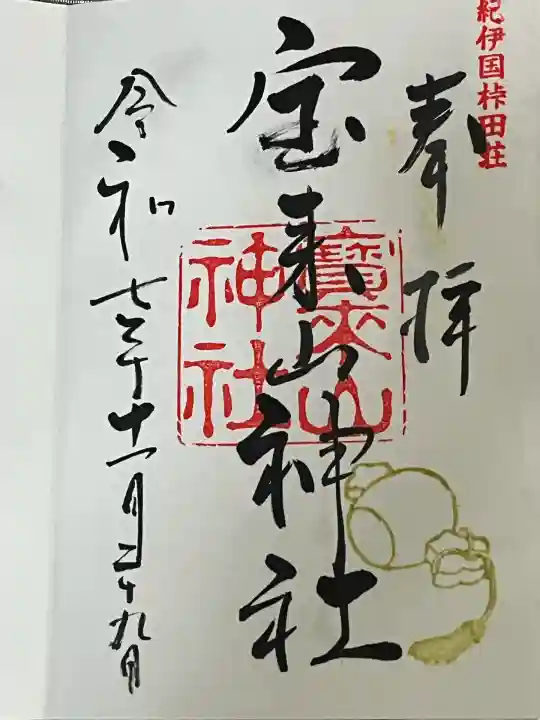 紀伊国桛田荘
奉拝
宝来山神社
寶来山
神社
令和七年十一月二十九日